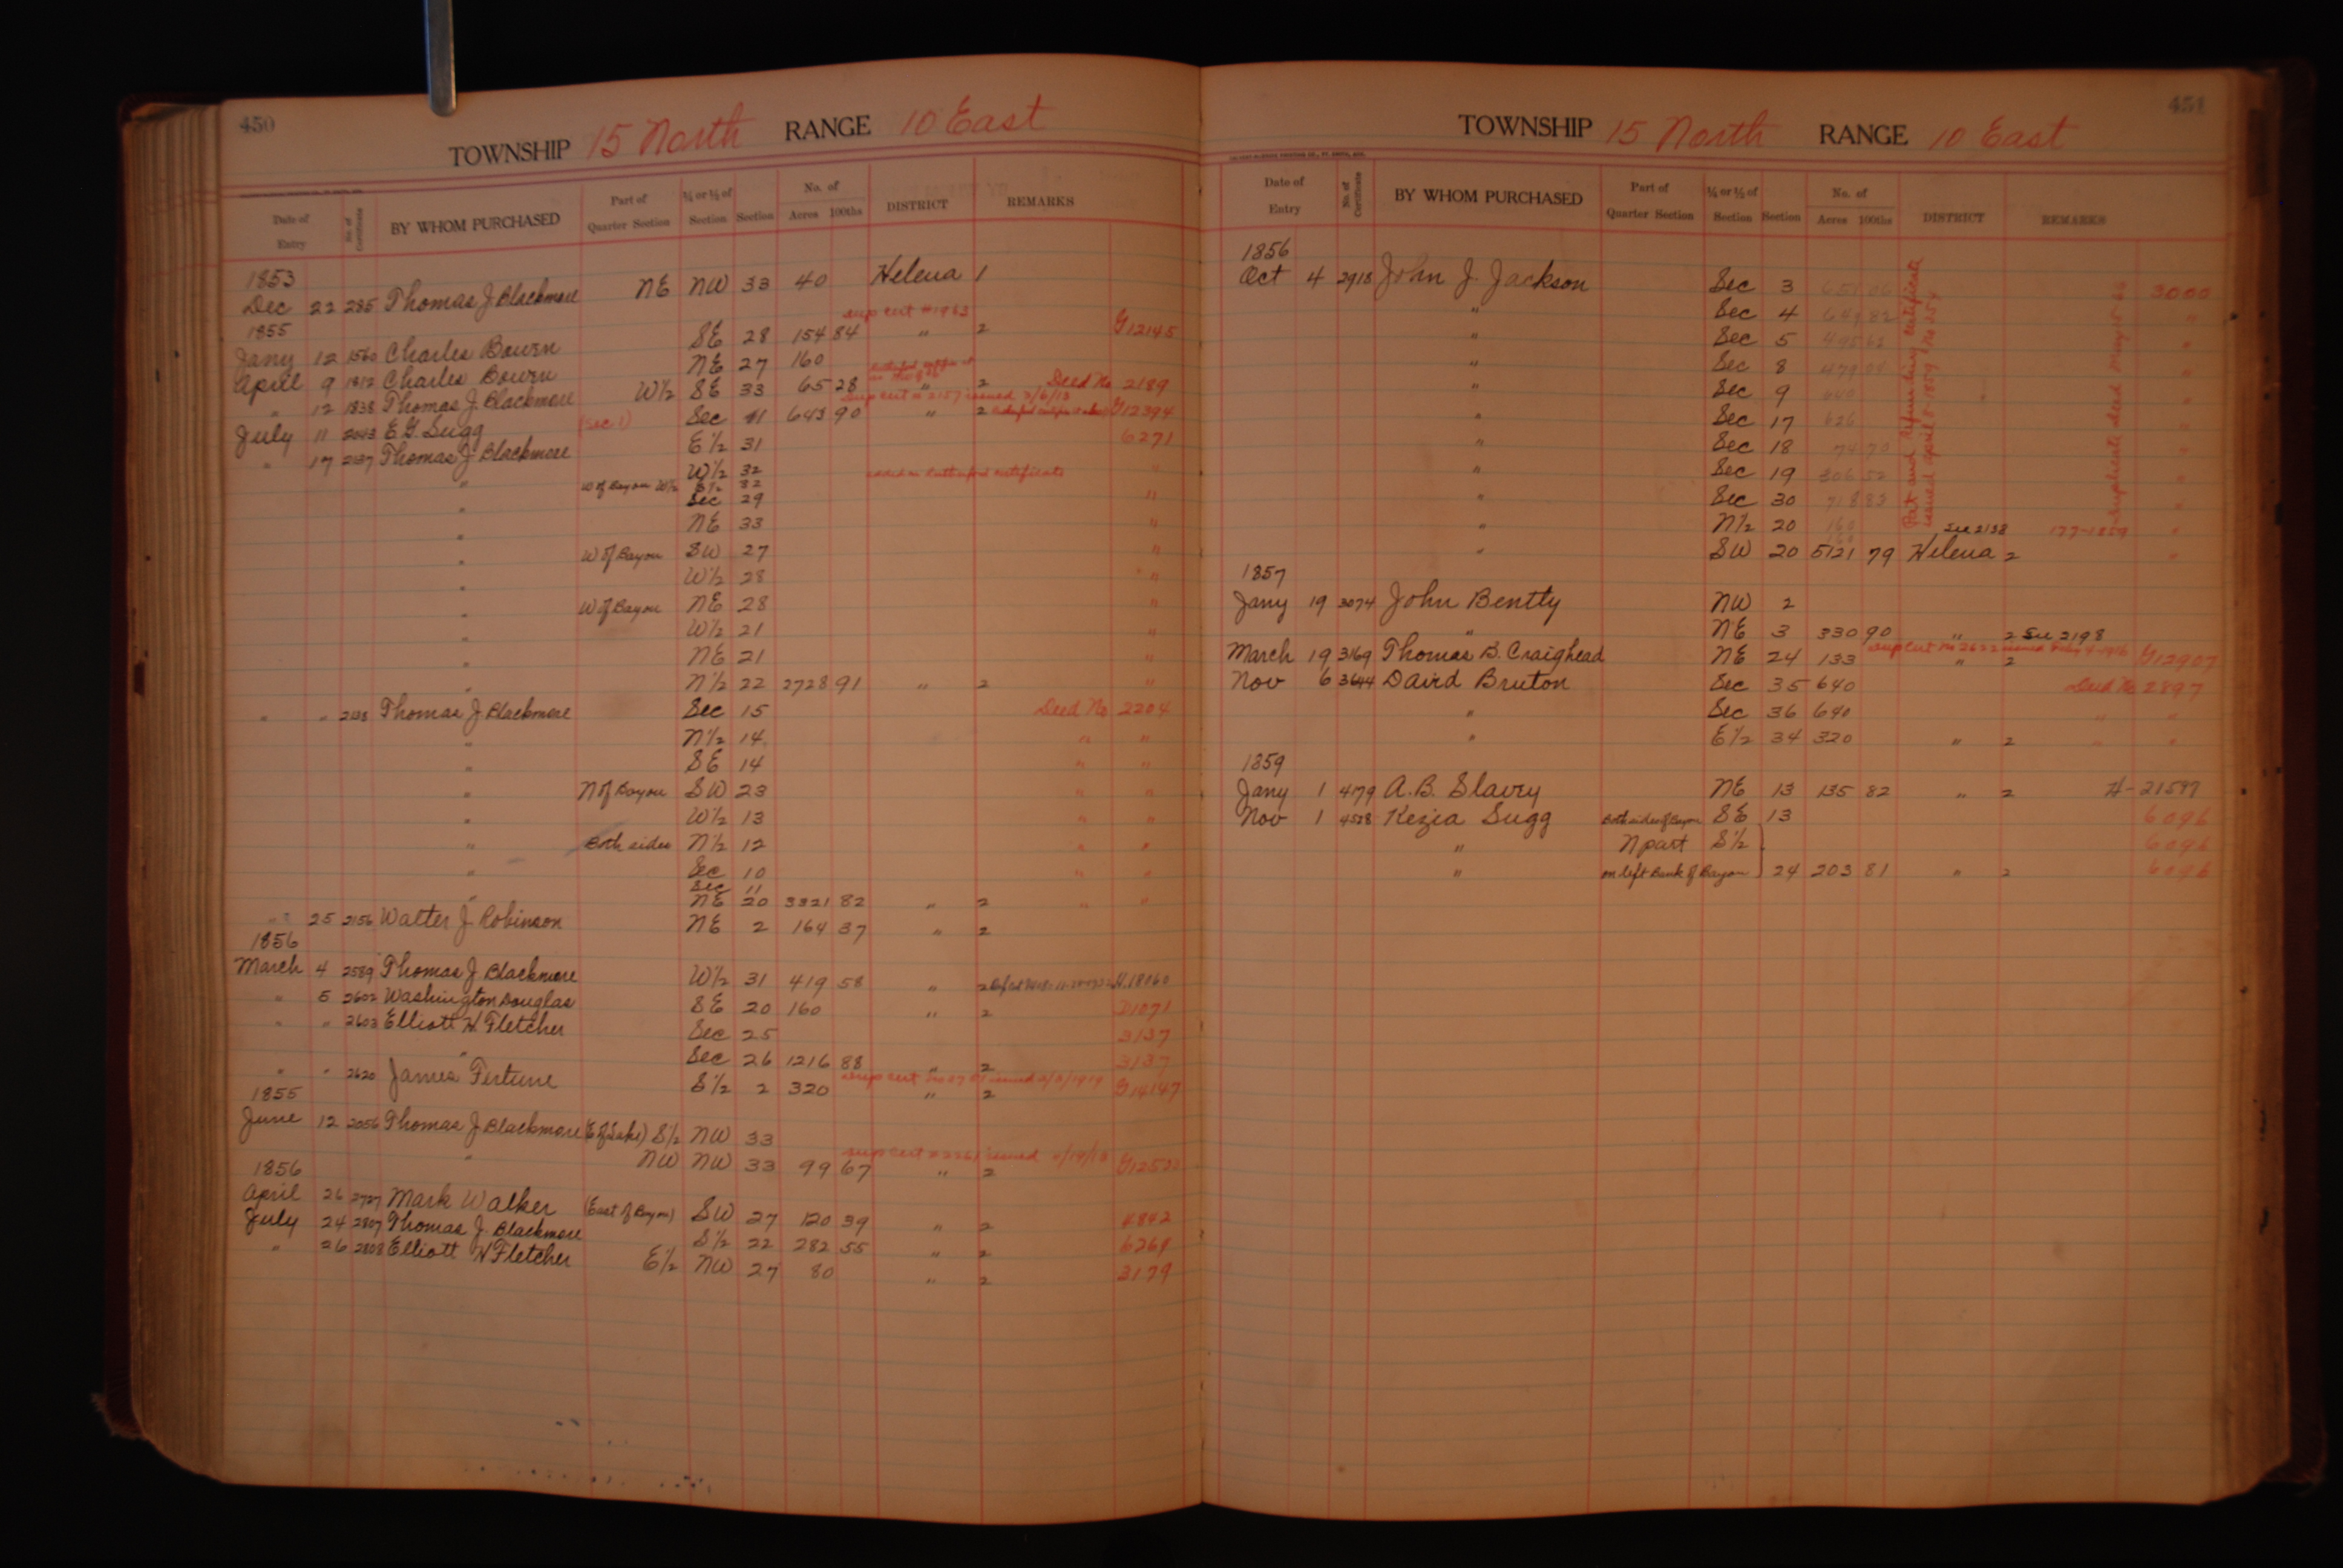 450
TOWNSHIP 15 North RANGE 10 East
Date of Entry No. of Certificate BY WHOM PURCHASED Part of Quarter Section ¼ or ½ of Section Section No. of Acres 100ths DISTRICT REMARKS
1853
Dec 22 285 Thomas J Blackmore NE NW 33 40 Helena 1
1855 sup cert # 1983
Jany 12 1560 Charles Bowen SE 28 154 84 " 2 G12145
April 9 1812 Charles Bowen NE 27 160
" 12 1838 Thomas J. Blackmore W½ SE 33 65 28 " 2 Deed No 2189
sup cert # 2157 issued 3/6/13
July 11 2043 E G Sugg (Sec 1) Sec 11 643 90 " 2 G12394
" 17 2137 Thomas J Blackmore E½ 31 6271
" W½ 32 "
W of Bayou W½ E½ 32
" Sec 29 "
" NE 33 "
" W of Bayou SW 27 "
" W½ 28 "
" W of Bayou NE 28 "
" W½ 21 "
" NE 21 "
" N½ 22 2728 91 " 2 "
" " 2138 Thomas J Blackmore Sec 15 Deed No 2204
" N½ 14 " "
" SE 14 " "
" N of Bayou SW 23 " "
" W½ 13 " "
" Both sides N½ 12 " "
" Sec 10 " "
Sec 11
" NE 20 3321 82 " 2 " "
" 25 2156 Walter J Robinson NE 2 164 37 " 2
1856
March 4 2589 Thomas J Blackmore W½ 31 419 58 " 2 H.18060
" 5 2602 Washington Douglas SE 20 160 " 2 D1071
" " 2603 Elliott H Fletcher Sec 25 3137
" Sec 26 1216 88 " 2 3137
" " 2620 James Fortune S½ 2 320 " 2 G14147
1855
June 12 2056 Thomas J Blackmore (E of Lake) S½ NW 33
" NW NW 33 99 67 " 2
1856
April 26 2727 Mark Walker (East of Bayou) SW 27 120 39 " 2 4842
July 24 2807 Thomas J. Blackmore S½ 22 282 55 " 2 6269
" 26 2808 Elliott H Fletcher E½ NW 27 80 " 2 3179
451
TOWNSHIP 15 North RANGE 10 East
Date of Entry No. of Certificate BY WHOM PURCHASED Part of Quarter Section ¼ or ½ of Section Section No. of Acres 100ths DISTRICT REMARKS
1856
Oct 4 2918 John J. Jackson Sec 3 3000
" Sec 4 "
" Sec 5 "
" Sec 8 "
" Sec 9 640 "
" Sec 17 626 "
" Sec 18 "
" Sec 19 306 52 "
" Sec 30 718 83 "
" N½ 20 160 See 2138 "
" SW 20 5121 79 Helena 2 "
1857
Jany 19 3074 John Bentty NW 2
" NE 3 330 90 " 2 See 2198
March 19 3169 Thomas B. Craighead NE 24 133 " 2 G12907
Nov 6 3644 David Bruton Sec 35 640 Deed No 2897
" Sec 36 640 " "
" E½ 34 320 " 2 " "
1859
Jany 1 4179 A.B. Slavry NE 13 135 82 " 2 H-21597
Nov 1 4528 Kezia Sugg Both sides of Bayou SE 13 6096
" N part S½ 6096
" on left Bank of Bayou 24 203 81 " 2 6096